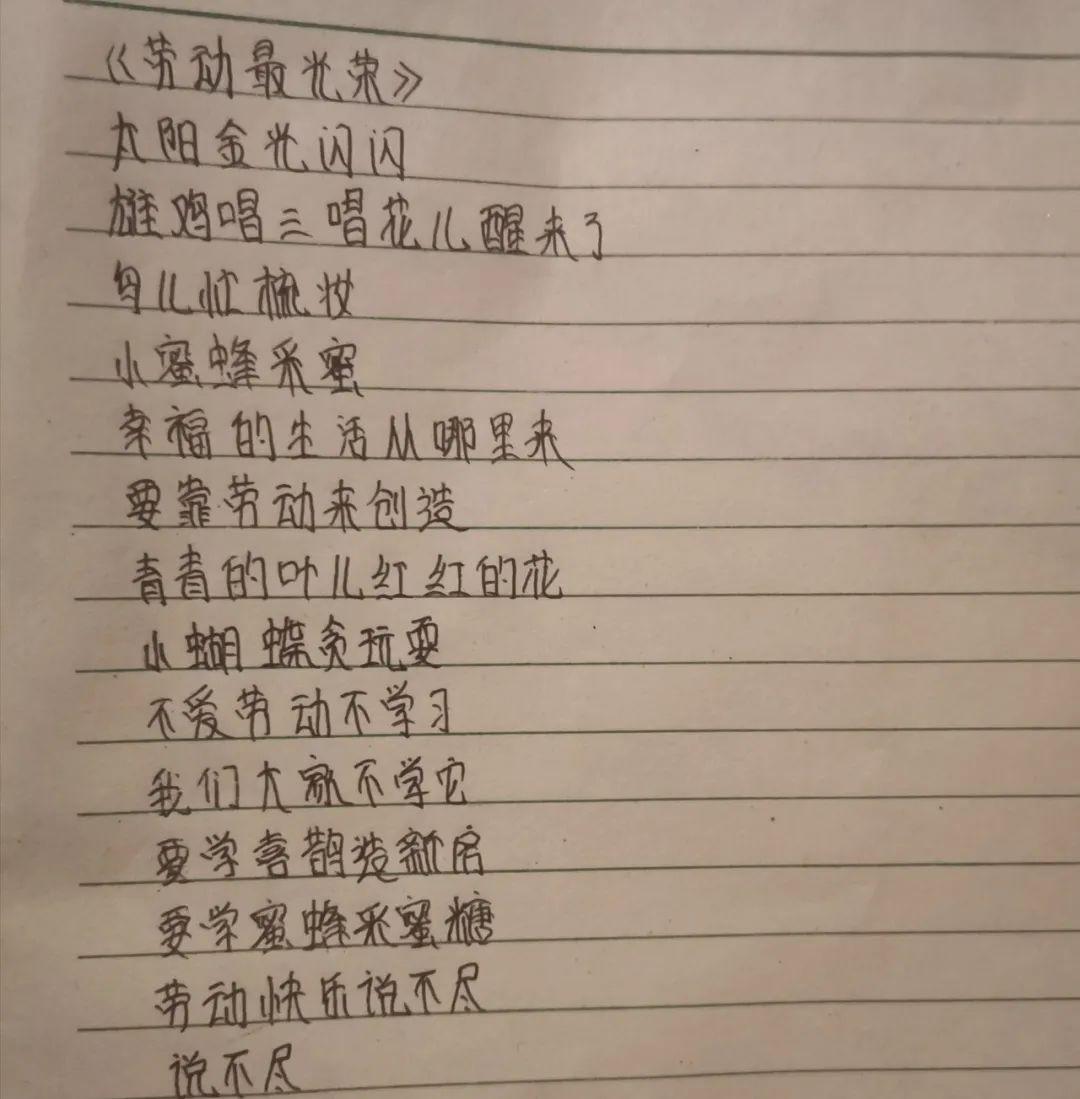 《劳动最光荣》
太阳金光闪闪
雄鸡唱三唱花儿醒来了
鸟儿忙梳妆
小蜜蜂采蜜
幸福的生活从哪里来
要靠劳动来创造
青青的叶儿红红的花
小蝴蝶贪玩耍
不爱劳动不学习
我们大家不学它
要学喜鹊造新房
要学蜜蜂采蜜糖
劳动快乐说不尽
说不尽